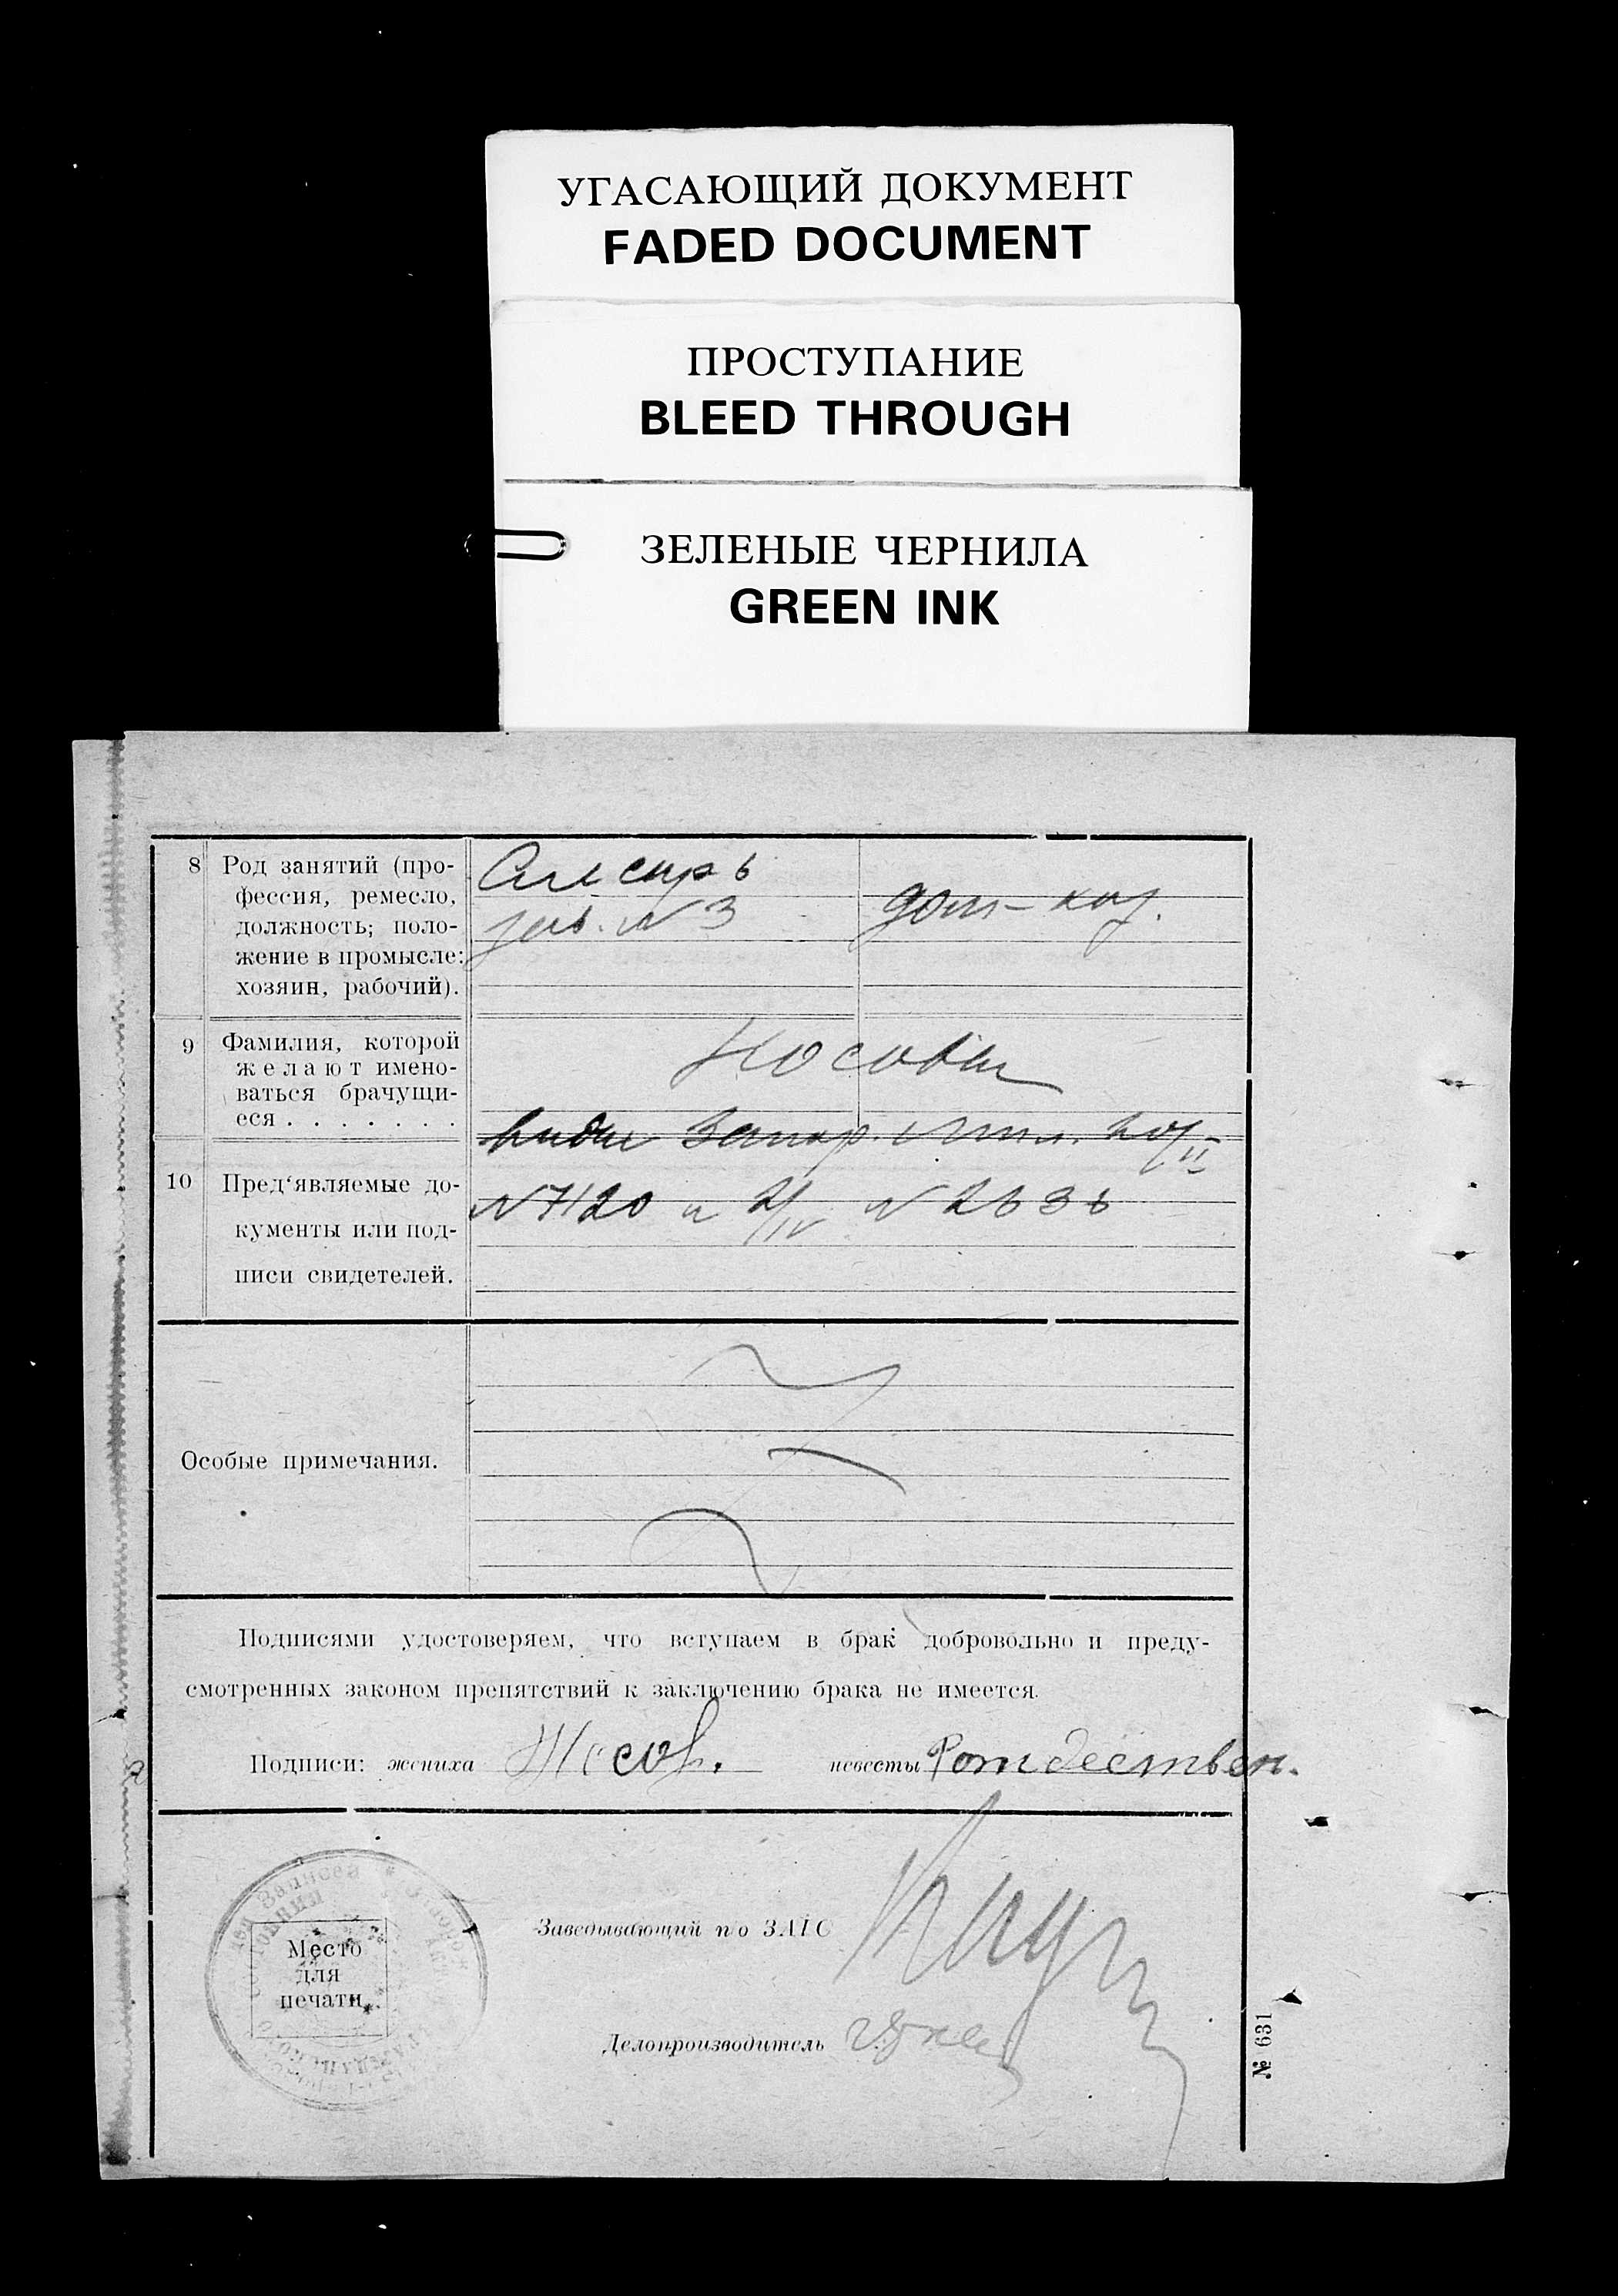 УГАСАЮЩИЙ ДОКУМЕНТ
FADED DOCUMENT
ПРОСТУПАНИЕ
BLEED THROUGH
ЗЕЛЕНЫЕ ЧЕРНИЛА
GREEN INK
8 Род занятий (про-
фессия, ремесло,
должность; поло-
жение в промысле:
хозяин, рабочий).
Слесарь
зав. № 3
дом-хоз.
9 Фамилия, которой
желают имено-
ваться брачущи-
еся . . . . . . .
Носовы
10 Пред‘являемые до-
кументы или под-
писи свидетелей.
виды Запор.
№ 7120 и 2/IV № 2636
Особые примечания.
Подписями удостоверяем, что вступаем в брак добровольно и преду-
смотренных законом препятствий к заключению брака не имеется.
Подписи: жениха Носов. невесты Рождествен.
Место
для
печати.
Заведывающий по ЗАГС
Делопроизводитель
№ 631